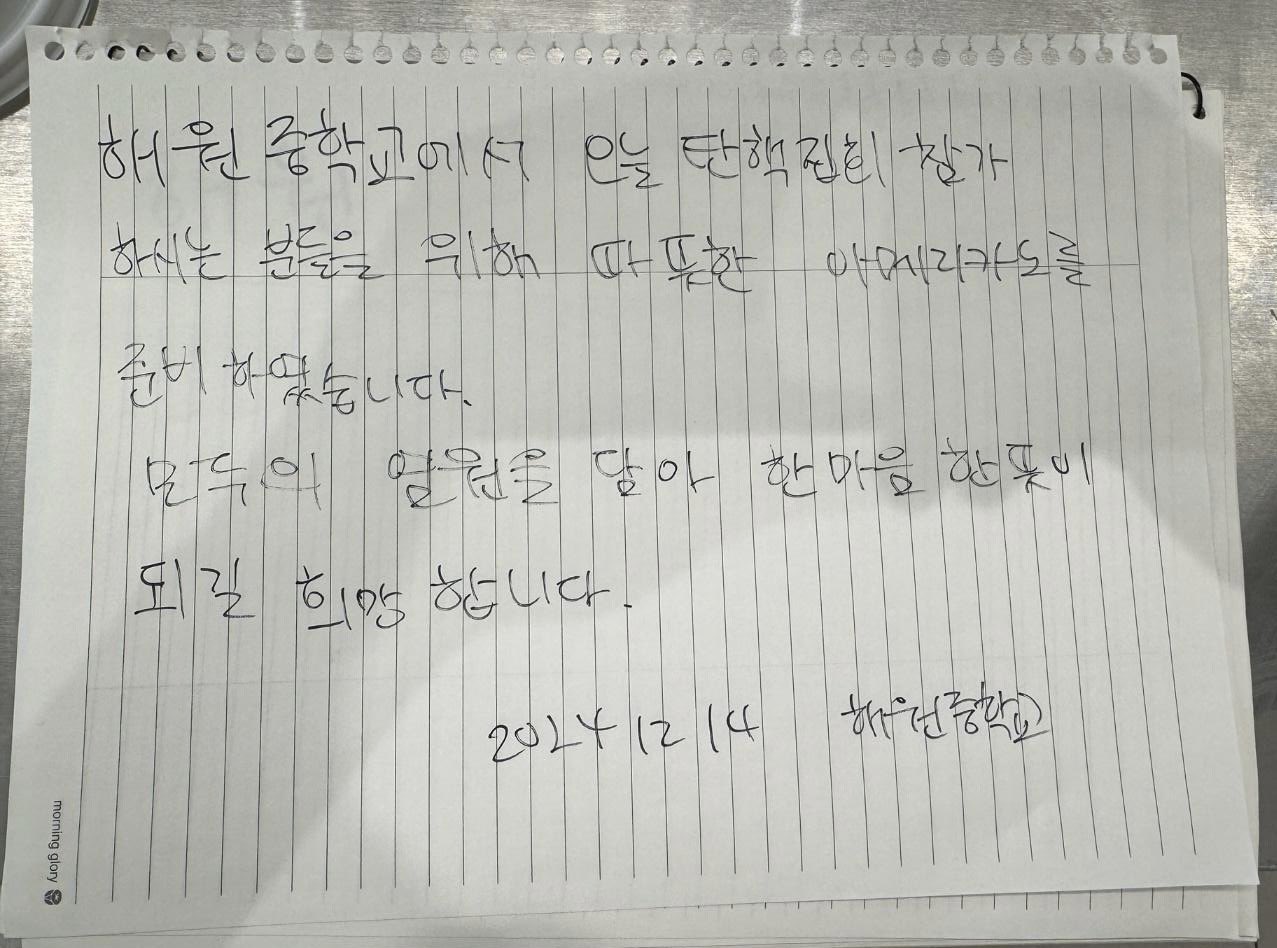 해원 중학교에서 오늘 탄핵집회 참가
하시는 분들을 위해 따뜻한 아메리카노를
준비 하였습니다.
모두의 염원을 담아 한마음 한뜻이
되길 희망 합니다.
2024 12 14 해원중학교
morning glory